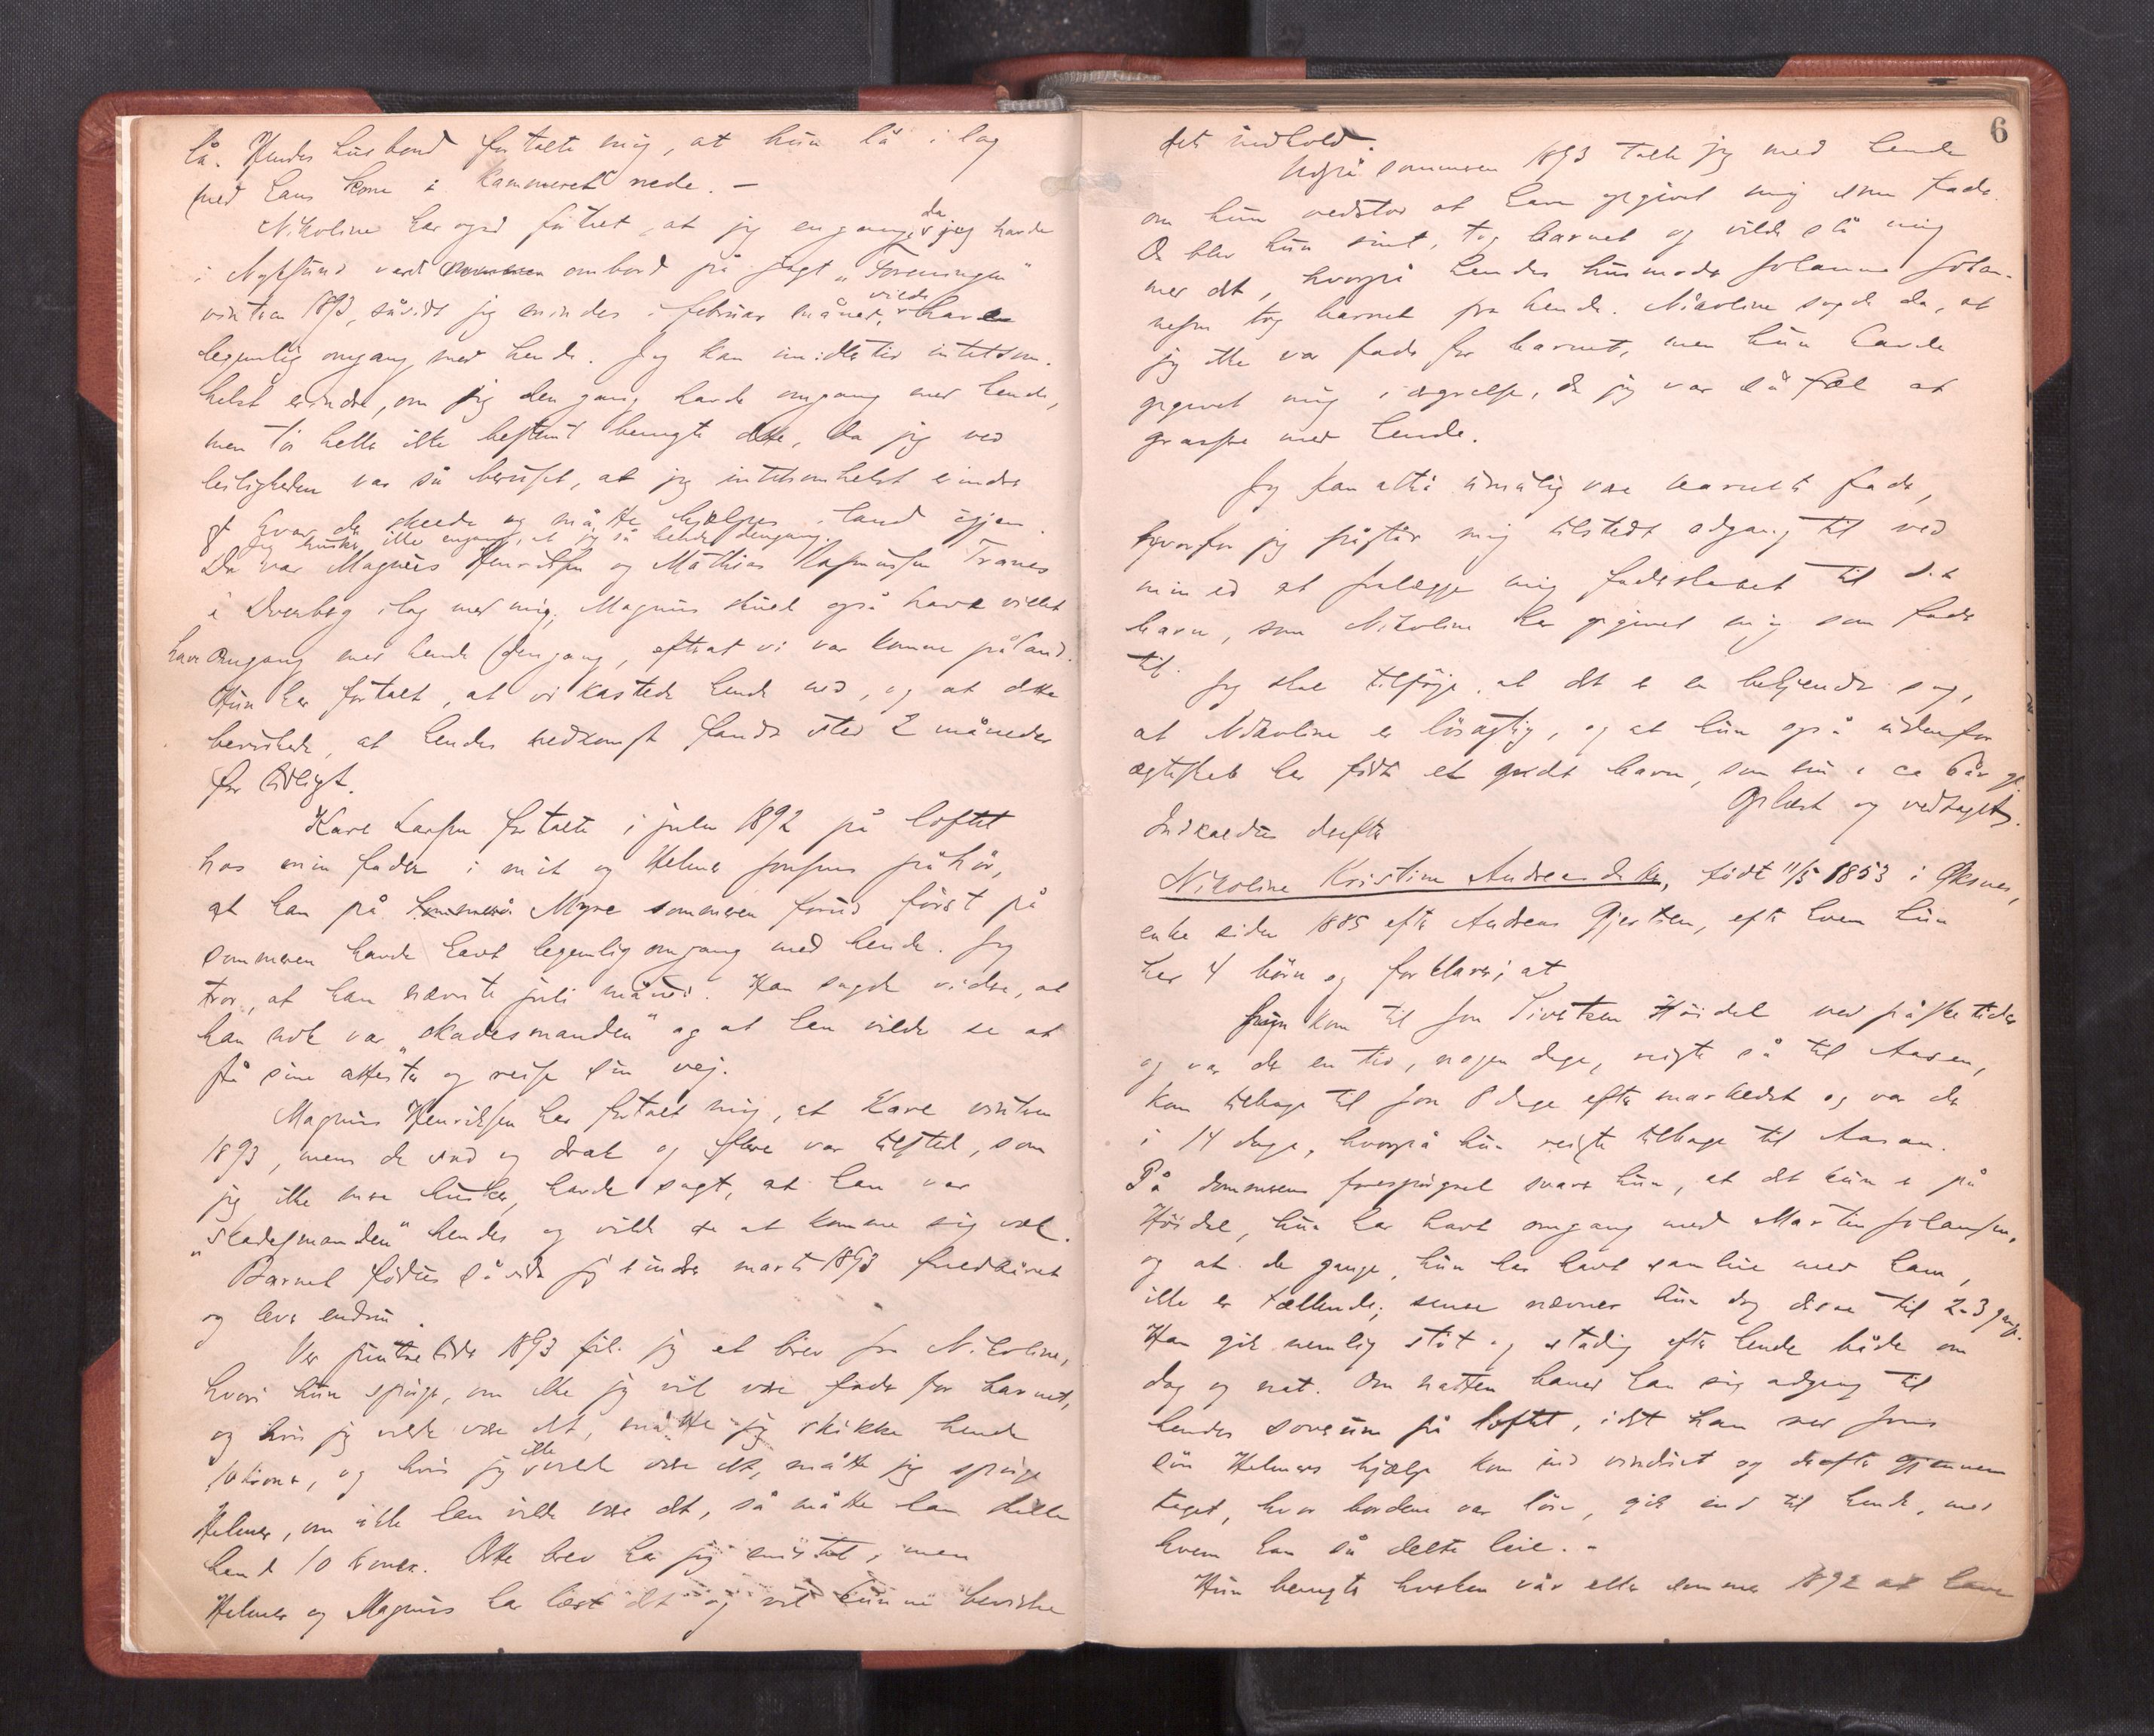 lå. Hendes husbond fortalte mig, at hun lå i lag
med hans kone i kammeret nede. –
Nikoline har også fortalt, at jeg engang, da jeg havde
i Nyksund været ombord på jagt „Foreningen"
vinteren 1893, såvidt jeg mindes i februar måned, vilde have
legemlig omgang med hende. Jeg kan imidlertid intetsom-
helst erindre, om jeg den gang havde omgang med hende,
men tør heller ikke bestemt benegte dette, da jeg ved
leiligheden var så beruset, at jeg intetsomhelst erindrer
af hvad der skede og måtte hjælpes i land igjen.
Jeg husker ikke engang, at jeg så hende dengang.
Der var Magnus Henriksen og Mathias Rasmussen Tranes
i Dverberg ilag med mig; Magnus skulde også have villet
have omgang med hende dengang, efterat vi var komne på land.
Hun har fortalt, at vi kastede hende ned, og at dette
bevirkede, at hendes nedkomst fandt sted 2 måneder
for tidligt.
Kare Larsen fortalte i julen 1892 på loftet
hos min fader i mit og Helmer Jonsens påhør,
at han på Myre sommeren forud først på
sommeren havde havt legemlig omgang med hende. Jeg
tror, at han nævnte juli måned. Han sagde videre, at
han nok var „skadesmanden" og at han vilde se at
få sine attester og reise sin vej.
Magnus Henriksen har fortalt mig, at Kare vinteren
1893, mens de stod og drak og flere var tilstede, som
jeg ikke mere husker, havde sagt, at han var
„skadesmanden" hendes og vilde se at komme sig væk.
Barnet fødtes såvidt jeg erindrer marts 1893 fuldbåret
og lever endnu.
Ved pintsetider 1893 fik jeg et brev fra Nikoline,
hvori hun spørger, om ikke jeg vil være fader for barnet,
og hvis jeg vilde være det, måtte jeg skikke hende
10 kroner, og hvis jeg ikke vilde være det, måtte jeg spørge
Helmer, om ikke han vilde være det, så måtte han skikke
hende 10 kroner. Dette brev har jeg mistet, men
Helmer og Magnus har læst det og vil kunne bevidne
6
dets indhold.
Udpå sommeren 1893 talte jeg med hende
om hun vedstod at have opgivet mig som fader.
Da blev hun sint, tog barnet og vilde slå mig
med det, hvorpå hendes husmoder Johanna Johan-
nesen tog barnet fra hende. Nikoline sagde da, at
jeg ikke var fader for barnet, men hun havde
opgivet mig i ægrelse, da jeg var så fæl at
grasse med hende.
Jeg kan altså umulig være barnets fader,
hvorfor jeg påstår mig tilstedt adgang til ved
min ed at fralægge mig faderskabet til det
barn, som Nikoline har opgivet mig som fader
til.
Jeg skal tilføje, at det er en bekjendt sag,
at Nikoline er løsagtig, og at hun også udenfor
ægteskab har født et godt barn, som nu er ca 6 år gl.
Oplæst og vedtaget.
Indkaldtes derefter
Nikoline Kristine Andreasdatter, født 11/5 1853 i Øksnes,
enke siden 1885 efter Andreas Gjertsen, efter hvem hun
har 4 børn og forklarer; at
hun kom til Jon Sivertsen Høidal ved påsketider
og var der en tid, nogen dage, reiste så til Aasen,
kom tilbage til Jon 8 dage efter markedet og var der
i 14 dage, hvorpå hun reiste tilbage til Aasan.
På dommerens forespørgsel svarer hun, at det kun er på
Høidal, hun har havt omgang med Martin Johansen,
og at de gange, hun har havt samleie med ham,
ikke er tællende; senere nævner hun dog disse til 2-3 gange.
Han gik nemlig støt og stadig efter hende både om
dag og nat. Om natten baned han sig adgang til
hendes soverum på loftet, idet han ved Jons
søn Helmers hjælp kom ind vinduet og derefter gjennem
taget, hvor bordene var løse, gik ind til hende, med
hvem han så delte leie. –
Hun benegter hverken vår eller sommer 1892 at have